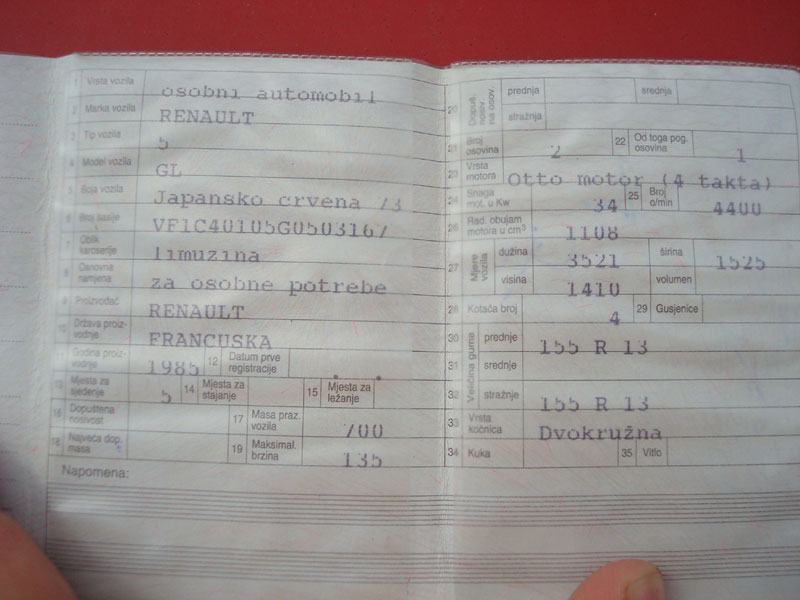 1 Vrsta vozila osobni automobil
2 Marka vozila RENAULT
3 Tip vozila 5
4 Model vozila GL
5 Boja vozila Japansko crvena 73
6 Broj šasije VF1C40105G0503167
7 Oblik karoserije limuzina
8 Osnovna namjena za osobne potrebe
9 Proizvođač RENAULT
10 Država proizvodnje FRANCUSKA
11 Godina proizvodnje 1985 12 Datum prve registracije
13 Mjesta za sjedenje 5 14 Mjesta za stajanje 15 Mjesta za ležanje
16 Dopuštena nosivost 17 Masa praz. vozila 700
18 Najveća dop. masa 19 Maksimal. brzina 135
Napomena:
20 Dopuš. nosiv. na osov. prednja srednja
stražnja
21 Broj osovina 2 22 Od toga pog. osovina 1
23 Vrsta motora Otto motor (4 takta)
24 Snaga mot. u Kw 34 25 Broj o/min 4400
26 Rad. obujam motora u cm³ 1108
27 Mjere vozila dužina 3521 širina 1525
visina 1410 volumen
28 Kotača broj 4 29 Gusjenice
30 Veličina guma prednje 155 R 13
31 srednje
32 stražnje 155 R 13
33 Vrsta kočnica Dvokružna
34 Kuka 35 Vitlo